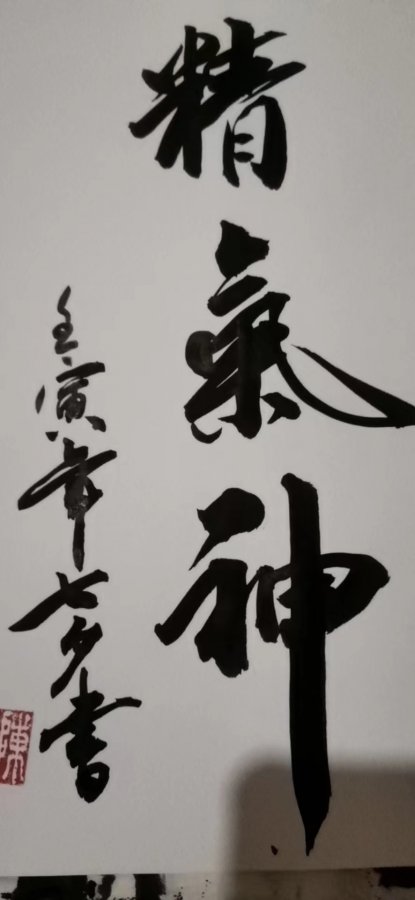 精氣神
壬寅年七夕書
陳